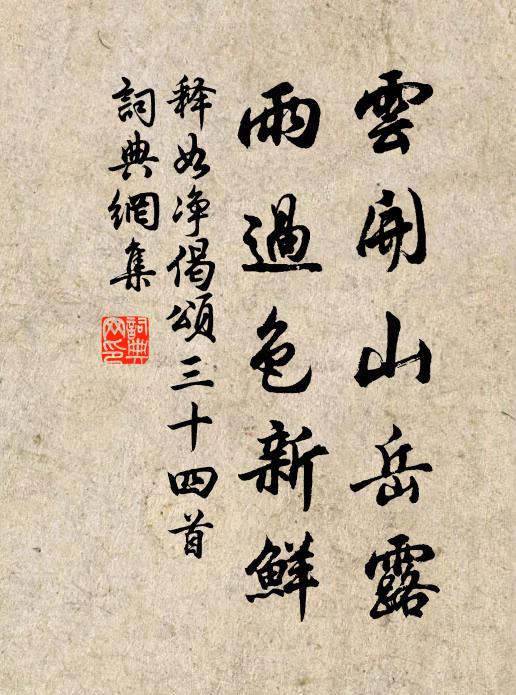 雲開山岳露
雨過色新鮮
释如净偈頌三十四首
詞典網集
詞典網印